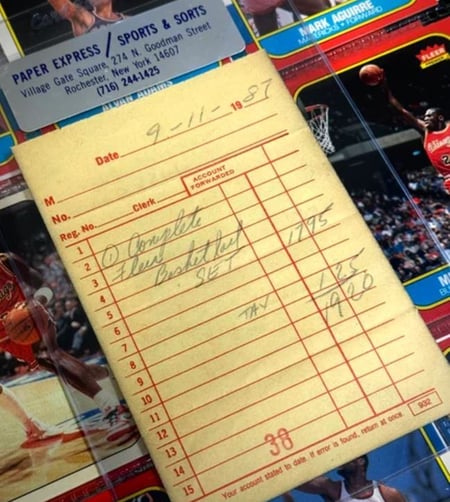 PAPER EXPRESS / SPORTS & SORTS
Village Gate Square, 274 N. Goodman Street
Rochester, New York 14607
(716) 244-1425
MARK AGUIRRE
MAVERICKS • FORWARD
FLEER
ALVAN ADAMS
Date 9-11-1987
M
No.
Reg. No. Clerk ACCOUNT FORWARDED
1 ① Complete
2 Fleer
3 Basketball 1795
4 SET
5
6 TAX 125
7 1920
8
9
10
11
12
13
14
15
38
Your account stated to date. If error is found, return at once. 932